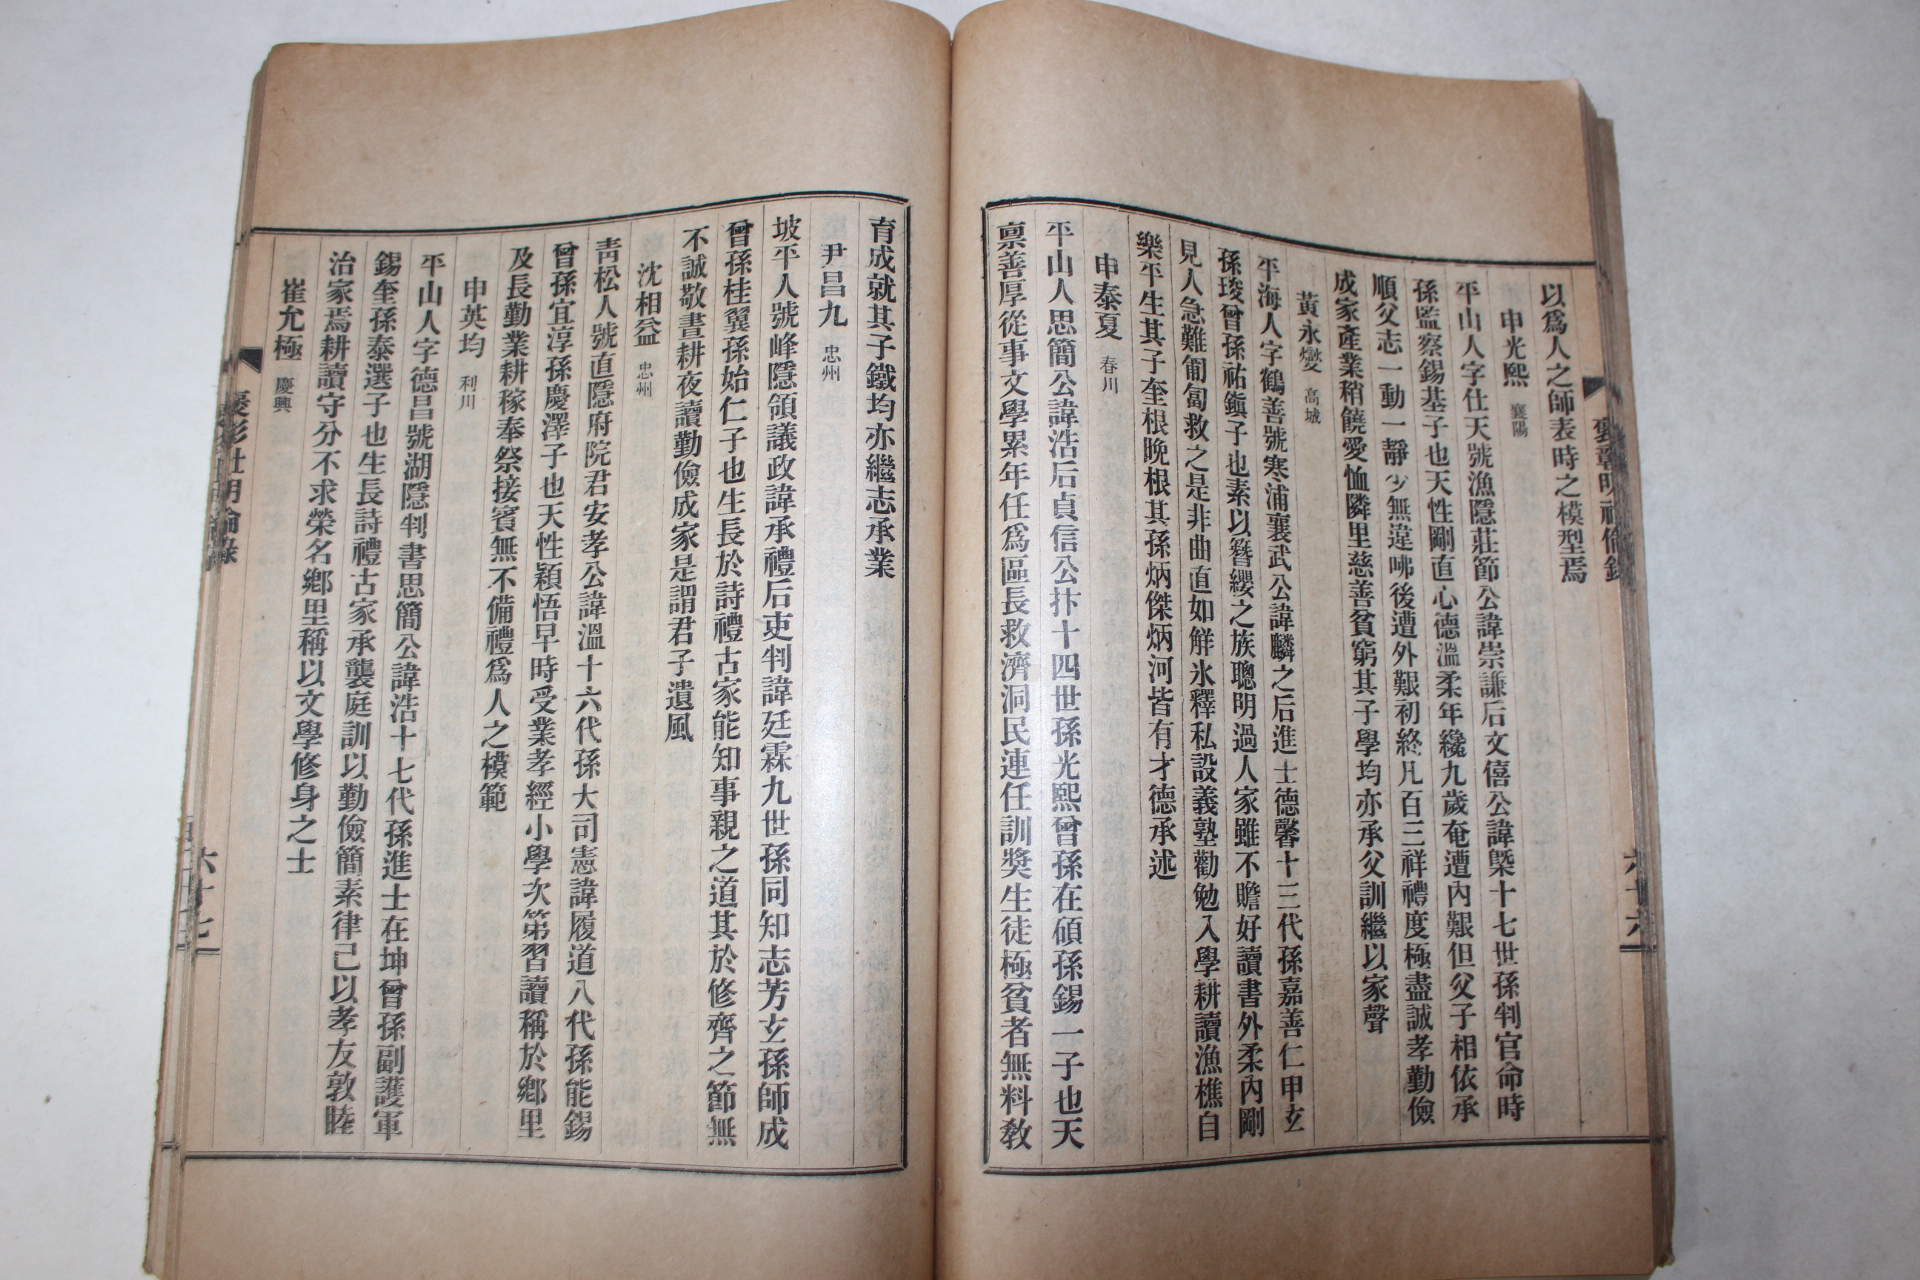 以爲人之師表時之模型焉
申光熙 襄陽
平山人字仕天號漁隱莊節公諱崇謙后文僖公諱槩十七世孫判官命時
孫監察錫基子也天性剛直心德溫柔年纔九歲奄遭內艱但父子相依承
順父志一動一靜少無違咈後遭外艱初終凡百三祥禮度極盡誠孝勤儉
成家產業稍饒愛恤隣里慈善貧窮其子學均亦承父訓繼以家聲
黃永燮 高城
平海人字鶴善號寒浦襄武公諱麟之后進士德馨十三代孫嘉善仁甲玄
孫琓曾孫祐鎭子也素以簪纓之族聰明過人家雖不贍好讀書外柔內剛
見人急難匍匐救之是非曲直如鮮氷釋私設義塾勸勉入學耕讀漁樵自
樂平生其子奎根晩根其孫炳傑炳河皆有才德承述
申泰夏 春川
平山人思簡公諱浩后貞信公抃十四世孫光熙曾孫在碩孫錫一子也天
禀善厚從事文學累年任爲區長救濟洞民連任訓獎生徒極貧者無料敎
六十六
育成就其子鐵均亦繼志承業
尹昌九 忠州
坡平人號峰隱領議政諱承禮后吏判諱廷霖九世孫同知志芳玄孫師成
曾孫桂翼孫始仁子也生長於詩禮古家能知事親之道其於修齊之節無
不誠敬晝耕夜讀勤儉成家是謂君子遺風
沈相益 忠州
靑松人號直隱府院君安孝公諱溫十六代孫大司憲諱履道八代孫能錫
曾孫宜淳孫慶澤子也天性穎悟早時受業孝經小學次第習讀稱於鄕里
及長勤業耕稼奉祭接賓無不備禮爲人之模範
申英均 利川
平山人字德昌號湖隱判書思簡公諱浩十七代孫進士在坤曾孫副護軍
錫奎孫泰選子也生長詩禮古家承襲庭訓以勤儉簡素律己以孝友敦睦
治家焉耕讀守分不求榮名鄕里稱以文學修身之士
崔允極 慶興
六十七